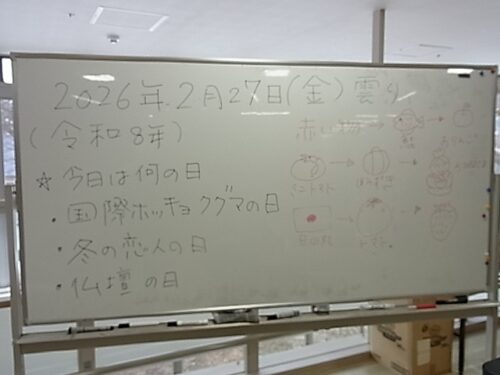 2026年2月27日(金)雲り
(令和8年)
☆今日は何の日
・国際ホッキョクグマの日
・冬の恋人の日
・仏壇の日
赤い物
ミニトマト
日の丸
トマト